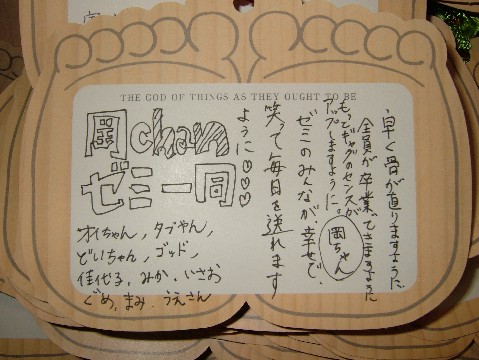 THE GOD OF THINGS AS THEY OUGHT TO BE
早く骨が直りますように
全員が卒業できますように
もっとギャグのセンスが
アップしますように。岡ちゃん
ゼミのみんなが幸せで、
笑って毎日を送れます
ように♡♡♡
岡chan
ゼミ一同
オカちゃん,タブやん,
どいちゃん,ゴッド,
佳代る,みか,いさお
ぐめ,まみ,うえさん